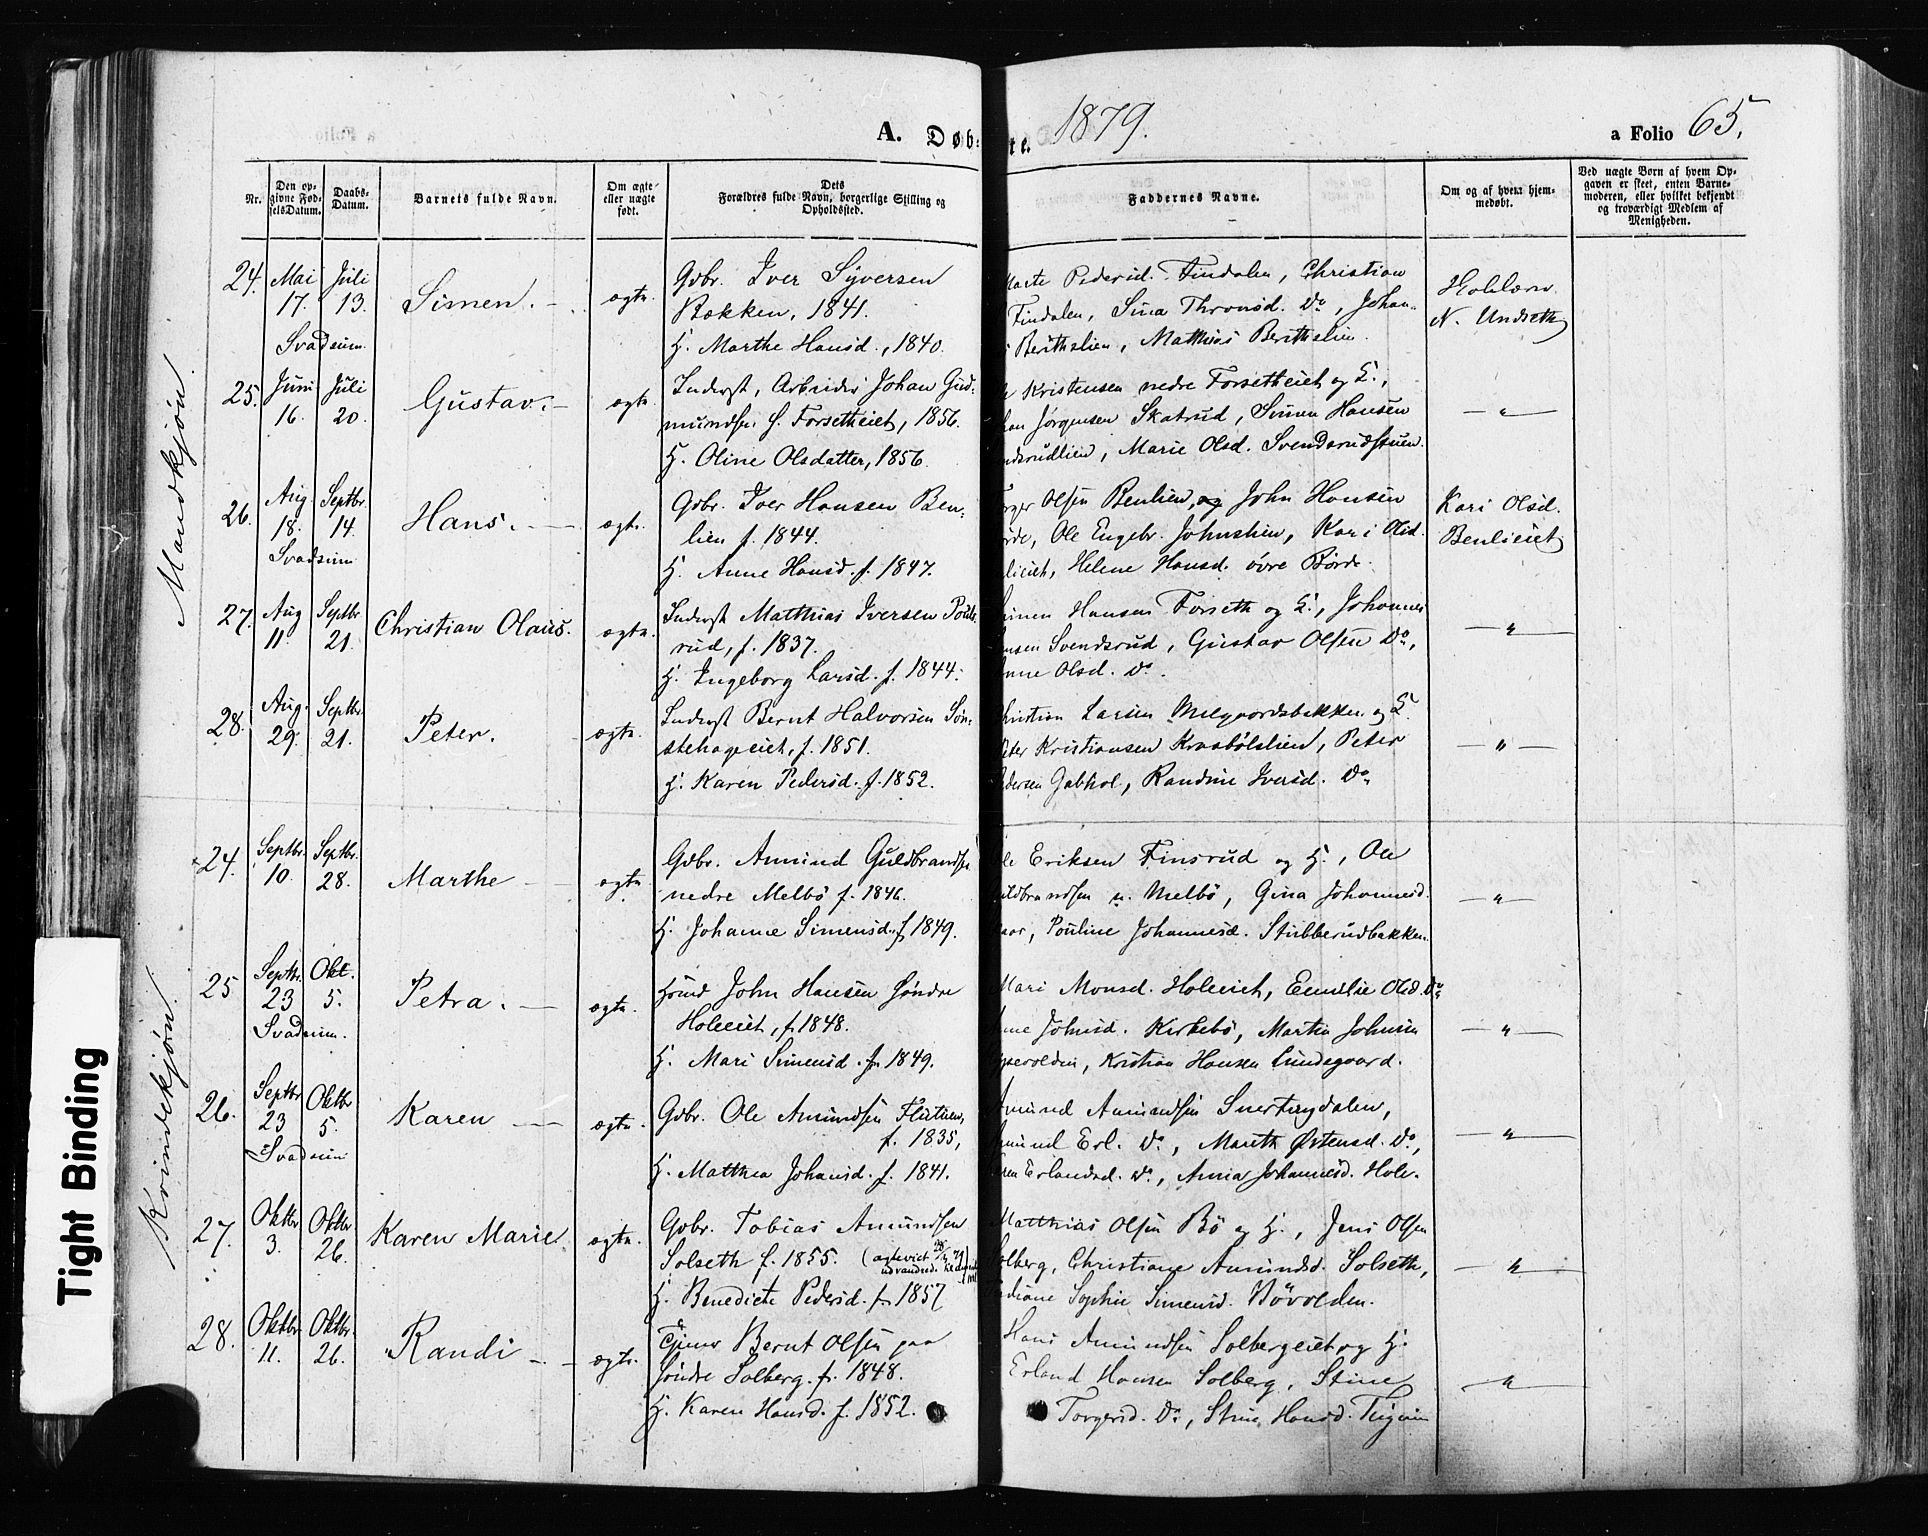 A. Døb- te. 1879.
a Folio 65.
Nr.
Den opgivne FødselsDatum.
Daabs-Datum.
Barnets fulde Navn.
Om ægte eller uægte født.
Dets Forældres fulde Navn, borgerlige Stilling og Opholdssted.
Faddernes Navne.
Om og af hvem hjemmedøbt.
Ved uægte Børn af hvem Opgaven er skeet, enten Barnemoderen, eller hvilket bekjendt og troværdigt Medlem af Menigheden.
Mandkjøn.
24. Mai 17. Juli 13. Simen. ægte. Gbr. Iver Syversen
Bækken, 1841.
Svadsum. H. Marthe Hansd., 1840.
Marte Pedersd. Findalen, Christian
Findalen, Sina Thronsd. Do, Johan-
Berithslien, Matthias Berithslien.
N. Undseth
25. Juni 16. Juli 20. Gustav. ægte. Inderst, Arbeider Johan Gud-
mundsen Forsetheiet, 1856.
H. Oline Olsdatter, 1856.
Kristensen nedre Forsetheiet og H.,
Jørgensen Skatrud, Simen Hansen
Marie Olsd. Svendsrudstuen.
— " —
26. Aug. 18. Septbr. 14. Hans. ægte. Gbr. Iver Hansen Ben-
lien f. 1844.
Svadsum H. Anne Hansd. f. 1847.
Olsen Benlien, og John Hansen
Ole Engebr. Johnslien, Kari Olsd.
Helene Hansd. øvre Børde.
Kari Olsd.
Benlieiet
27. Aug 11. Septbr 21. Christian Olaus. ægte. Inderst Matthias Iversen Pouls-
rud, f. 1837.
H. Ingeborg Larsd. f. 1844.
Hansen Forseth og H., Johannes
Svendsrud, Gustav Olsen Do,
Olsd. Do.
— " —
28. Aug. 29. Septbr. 21. Peter. ægte. Inderst Bernt Halvorsen Søn-
stehageeiet, f. 1851.
H. Karen Pedersd. f. 1852.
Christian Larsen Melgaardsbakken og H.
Kristiansen Krabølslien, Peter
Pedersen Gabhol, Randine Iversd. Do
— " —
Kvindekjøn.
24. Septbr. 10. Septbr. 28. Marthe ægte. Gbr. Amund Guldbrandsen
nedre Melbø f. 1846.
H. Johanne Simensd. f 1849.
Ole Eriksen Finsrud og H., Ole
Guldbrandsen n. Melbø, Gina Johannesd.
Pouline Johannesd. Stubberudbakken.
— " —
25 Septbr. 23 Okt. 5. Petra. ægte. Hmd John Hansen søndre
Holeeiet, f. 1848.
Svadsum. H. Mari Simensd. f. 1849.
Mari Monsd. Holeeiet, Emilie Olsd. Do
Johnsd. Kirkebø, Martin Johnsen
Kristian Hansen Lundegaard.
— " —
26. Septbr 23 Oktbr 5. Karen ægte. Gbr. Ole Amundsen Flutuen,
f. 1835,
Svadsum H. Matthea Johansd. f. 1841.
Amund Amundsen Snertingdalen,
Amund Erl. Do, Marith Østensd. Do,
Erlandsd. Do, Anna Johannesd. Hole.
— " —
27. Oktbr 3. Oktbr 26. Karen Marie ægte. Gbr. Tobias Amundsen
Solseth f. 1855. udvandred.
H. Benedicte Pedersd. f. 1857
Matthias Olsen Bø og H., Jens Olsen
Solberg, Christiane Amundsd. Solseth,
Sophie Simensd. Bøvolden.
— " —
28. Oktbr 11. Oktbr. 26. Randi ægte. Tjener Bernt Olsen paa
søndre Solberg. f. 1848.
H. Karen Hansd. f. 1852.
Hans Amundsen Solbergeiet og H.
Erland Hansen Solberg, Stine
Torgersd. Do, Stine Hansd.
— " —
Tight Binding